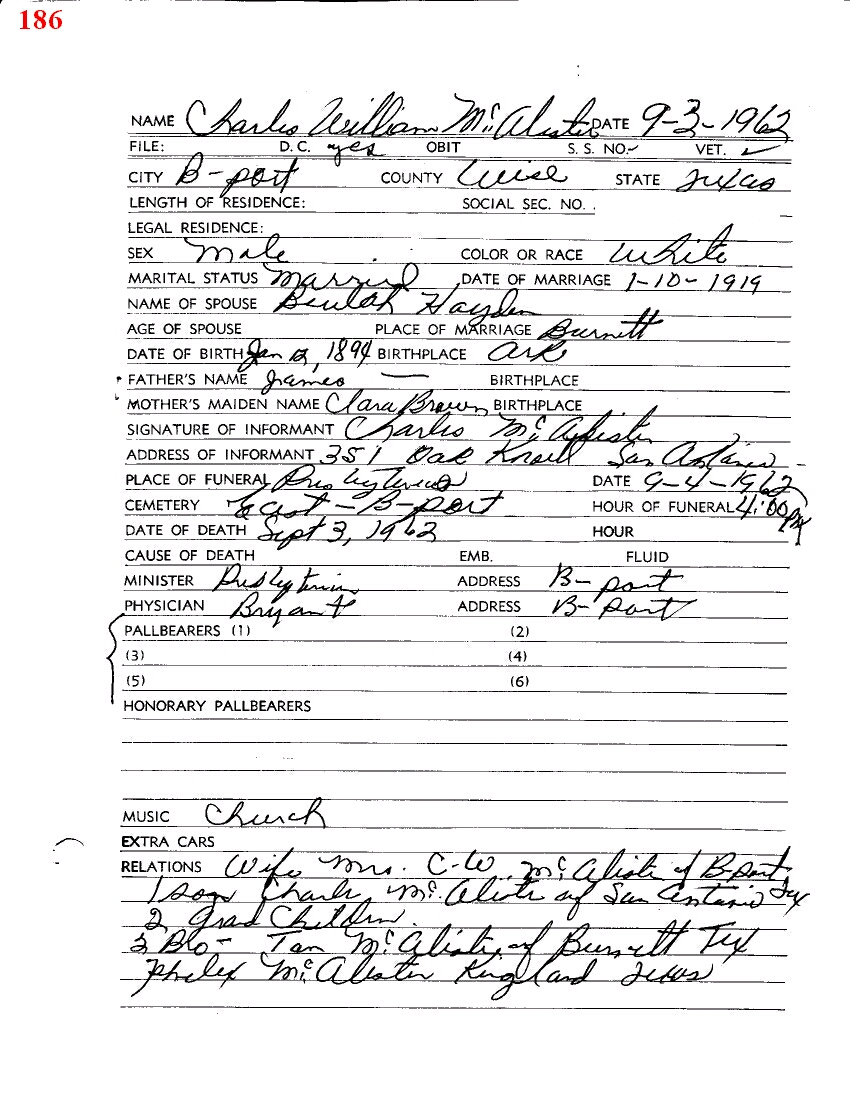 186
NAME Charles William McAlister DATE 9-3-1962
FILE: D.C. yes OBIT S. S. NO. ✓ VET. ✓
CITY B-port COUNTY Wise STATE Texas
LENGTH OF RESIDENCE: SOCIAL SEC. NO.
LEGAL RESIDENCE:
SEX Male COLOR OR RACE White
MARITAL STATUS Married DATE OF MARRIAGE 1-10-1919
NAME OF SPOUSE Beulah Hayden
AGE OF SPOUSE PLACE OF MARRIAGE Burnett
DATE OF BIRTH Jan 12, 1894 BIRTHPLACE Ark
FATHER'S NAME James — BIRTHPLACE
MOTHER'S MAIDEN NAME Clara Brown BIRTHPLACE
SIGNATURE OF INFORMANT Charles McAlister
ADDRESS OF INFORMANT 351 Oak Knoll San Antonio
PLACE OF FUNERAL Presbyterian DATE 9-4-1962
CEMETERY East-B-port HOUR OF FUNERAL 4:00 PM
DATE OF DEATH Sept 3, 1962 HOUR
CAUSE OF DEATH EMB. FLUID
MINISTER Presbyterian ADDRESS B-port
PHYSICIAN Bryant ADDRESS B-port
PALLBEARERS (1) (2)
(3) (4)
(5) (6)
HONORARY PALLBEARERS
MUSIC Church
EXTRA CARS
RELATIONS Wife Mrs. C-W McAlister of B-port
1 son Charles McAlister of San Antonio Tex
2 Grad Children
3 Bro- Tom McAlister of Burnett Tex
Phelex McAlister Kingsland Texas